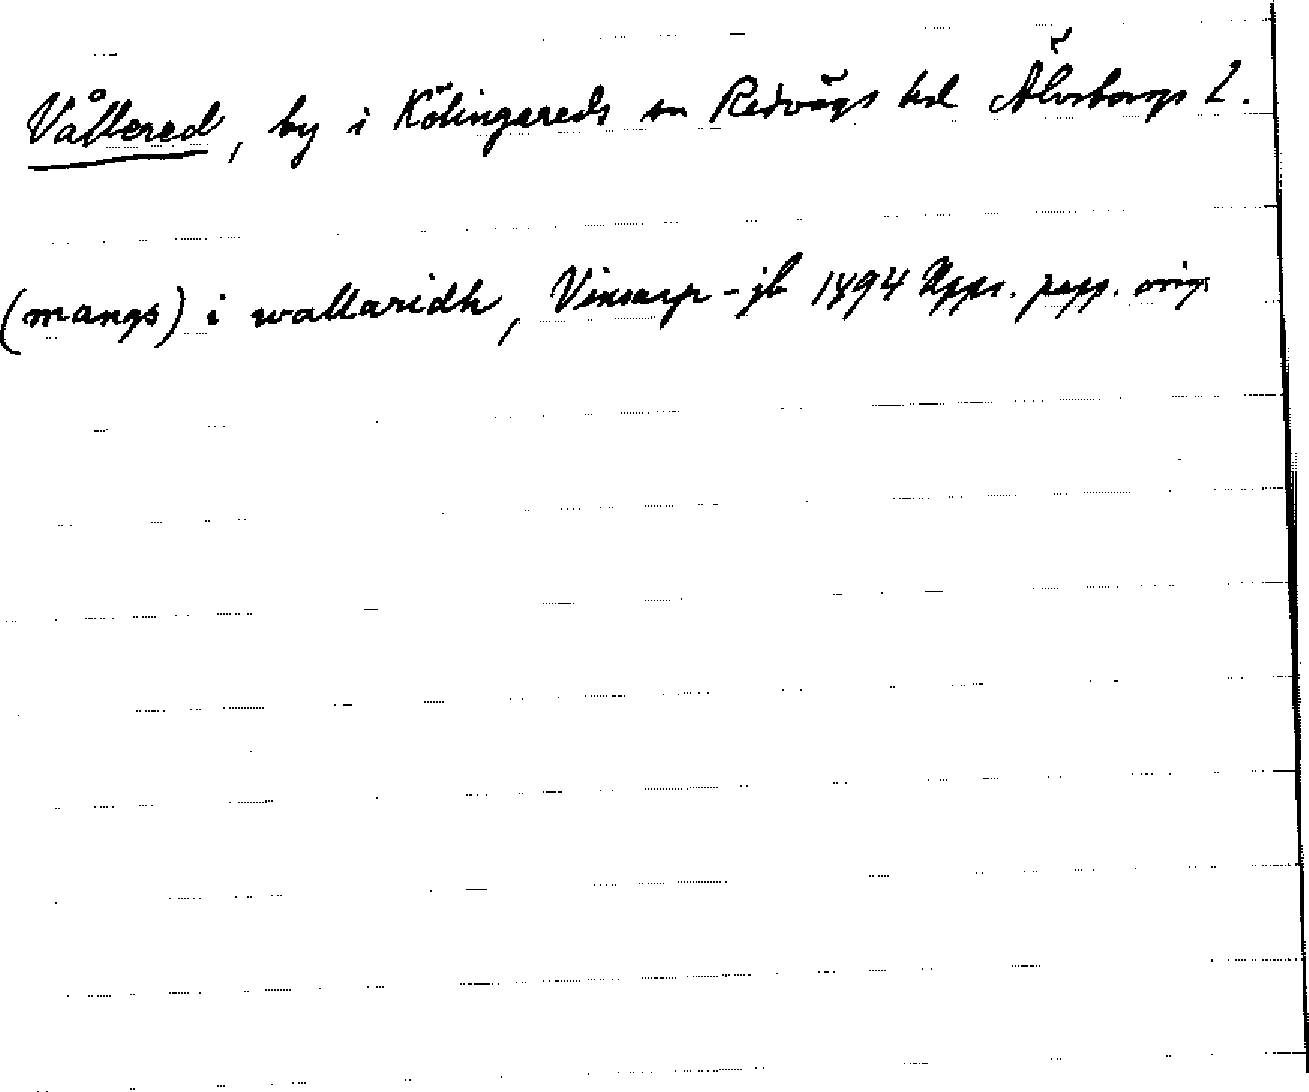 Vållered, by i Kölingareds sn Redvägs hd Älvsborgs l.
(mangs) i wallaridh, Vinsarp-jb 1494 Upps. papp. orig.